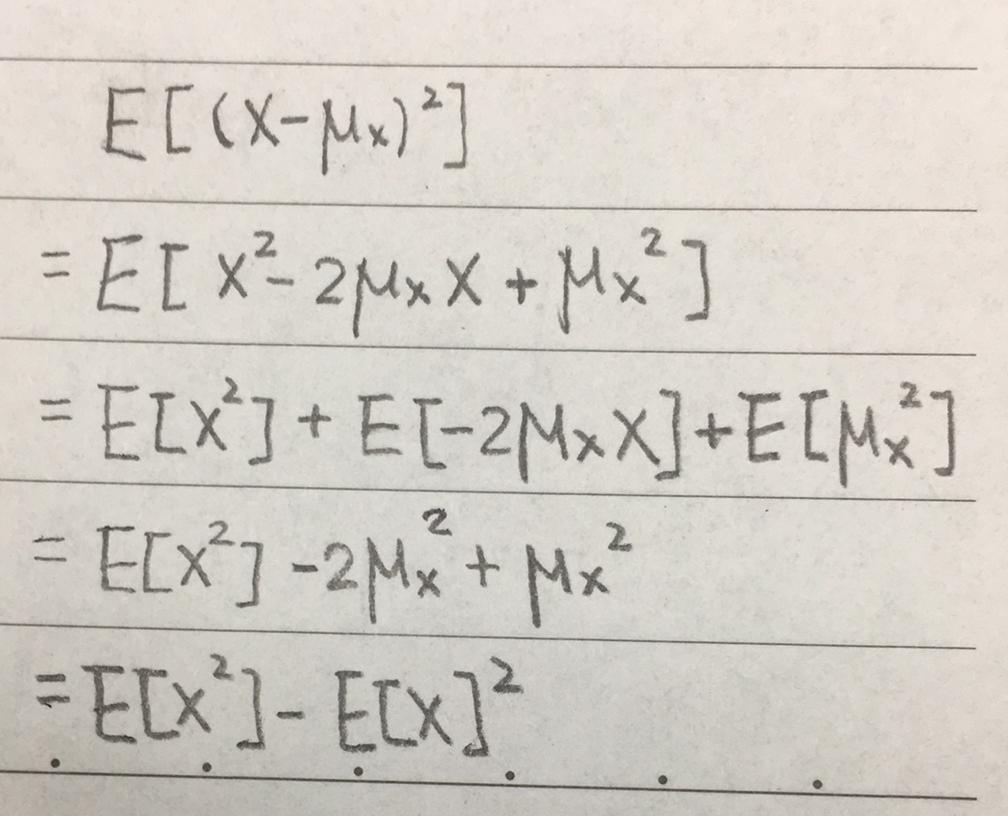 E[(X-μₓ)²]
= E[X²-2μₓX+μₓ²]
= E[X²]+E[-2μₓX]+E[μₓ²]
= E[X²]-2μₓ²+μₓ²
= E[X²]-E[X]²